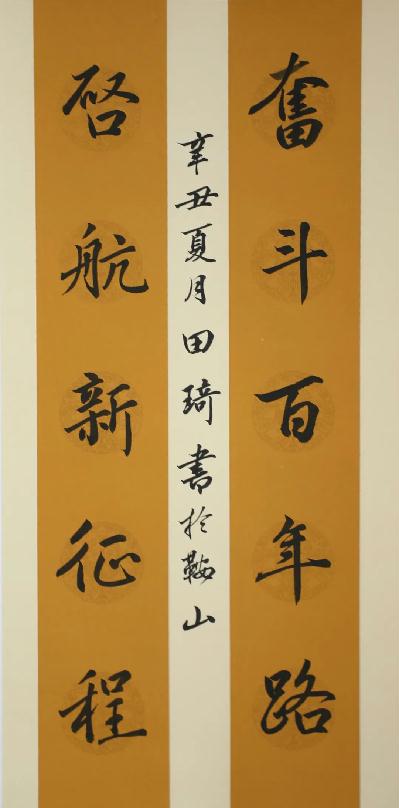 奮斗百年路
啓航新征程
辛丑夏月田琦書於鞍山